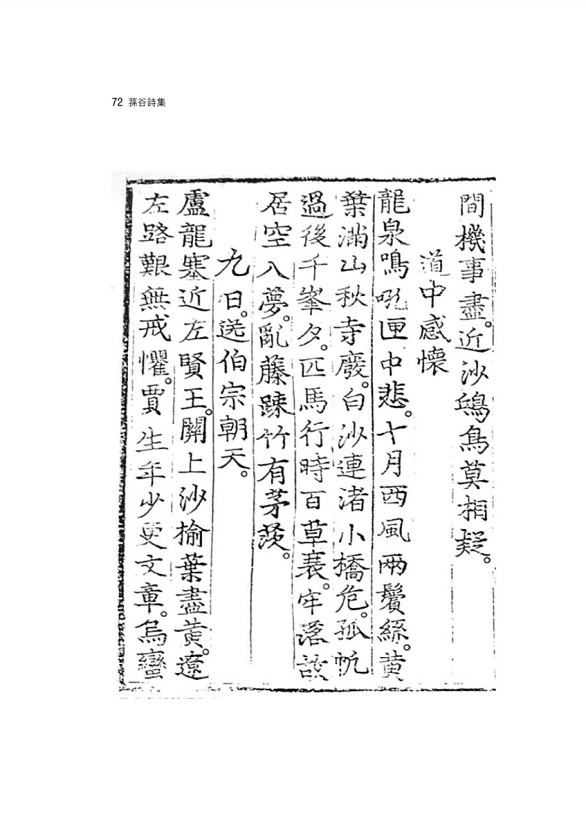 72 蓀谷詩集
間機事盡。近沙鴟鳥莫相疑。
道中感懷
龍泉鳴吼匣中悲。十月西風兩鬢絲。黃
葉滿山秋寺廢。白沙連渚小橋危。孤帆
過後千峯夕。匹馬行時百草衰。牢落故
居空入夢。亂藤踈竹有茅茨。
九日。送伯宗朝天。
盧龍塞近左賢王。關上沙榆葉盡黃。遼
左路艱無戒懼。賈生年少更文章。烏蠻